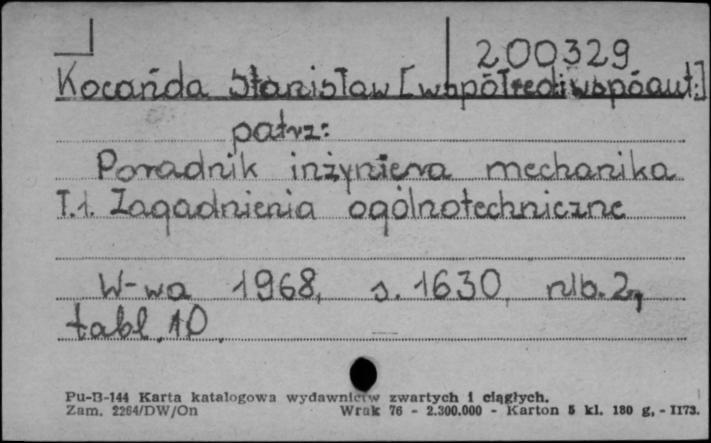 200329
Kocańda Stanisław [współred.i wspóaut.]
patrz:
Poradnik inżyniera mechanika
T.1. Zagadnienia ogólnotechniczne
W-wa 1968, s. 1630, nlb. 2,
tabl. 10.
Pu-B-144 Karta katalogowa wydawnictw zwartych i ciągłych.
Zam. 2264/DW/On Wrak 76 - 2.300.000 - Karton 5 kl. 180 g, - II73.